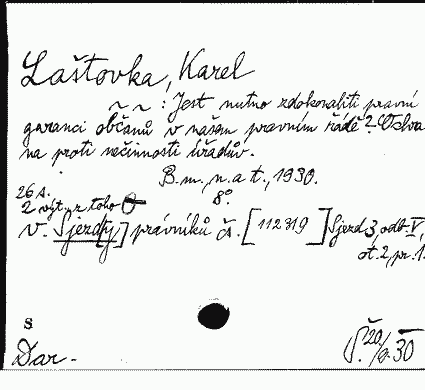 Laštovka, Karel
~ ~ : Jest nutno zdokonaliti pravní
garanci občanů v našem právním řádě? Ústava
na proti nečinnosti úřadův.
B. m., n. a t., 1930.
8°
26 A.
2 výt. z toho
V. Sjezd[y] právníků čs. [112319] Sjezd 3, odb. V,
ot. 2, pr. 1.
S
Dar.
30